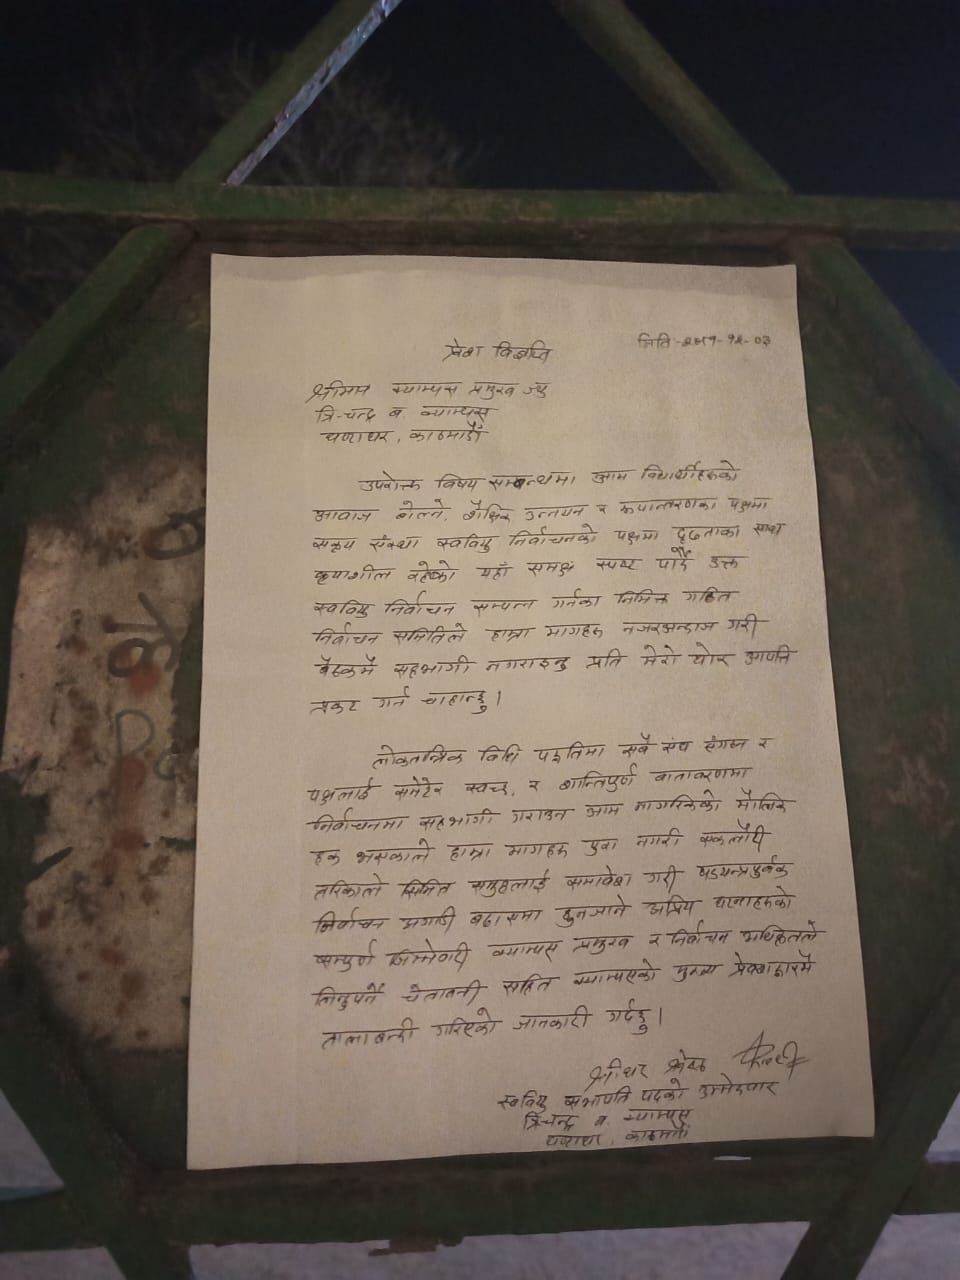 प्रेश विज्ञप्ति
मिति-२०७९-१२-०३
श्रीमान क्याम्पस प्रमुख ज्यु
त्रि-चन्द्र ब क्याम्पस
घण्टाघर, काठमाडौँ
उपरोक्त विषय सम्बन्धमा आम विद्यार्थीहरूको
आवाज बोल्ने, शैक्षिक उन्नयन र रूपान्तरणका पक्षमा
संस्था स्ववियु निर्वाचनको पक्षमा दृढताका साथ
कृयाशील रहेको यहाँ समक्ष स्पष्ट पार्दै उक्त
स्ववियु निर्वाचन सम्पन्न गर्नका निमित्त गठित
निर्वाचन समितिले हाम्रा मागहरू नजरअन्दाज गरी
बैठकमै सहभागी नगराइनु प्रति मेरो घोर आपत्ति
प्रकट गर्न चाहान्छु।
लोकतान्त्रिक विधि पद्धतिमा सबै संघ संगठन र
पक्षलाई समेटेर स्वच्छ, र शान्तिपुर्ण वातावरणमा
निर्वाचनमा सहभागी गराउन आम नागरिकको मौलिक
हक भएकाले हाम्रा मागहरू पुरा नगरी एकलौटी
तरिकाले सिमित समुहलाई समावेश गरी षडयन्त्रपुर्वक
निर्वाचन अगाडी बढाएमा हुनजाने अप्रिय घटनाहरूको
सम्पुर्ण जिम्मेवारी क्याम्पस प्रमुख र निर्वाचन अधिकृतले
लिनुपर्ने चेतावनी सहित क्याम्पसको मुख्य प्रवेशद्वारमै
तालाबन्दी गरिएको जानकारी गर्दछु।
श्रीधर श्रेष्ठ
स्ववियु सभापति पदको उम्मेदवार
त्रिचन्द्र ब. क्याम्पस
घण्टाघर, काठमाडौं